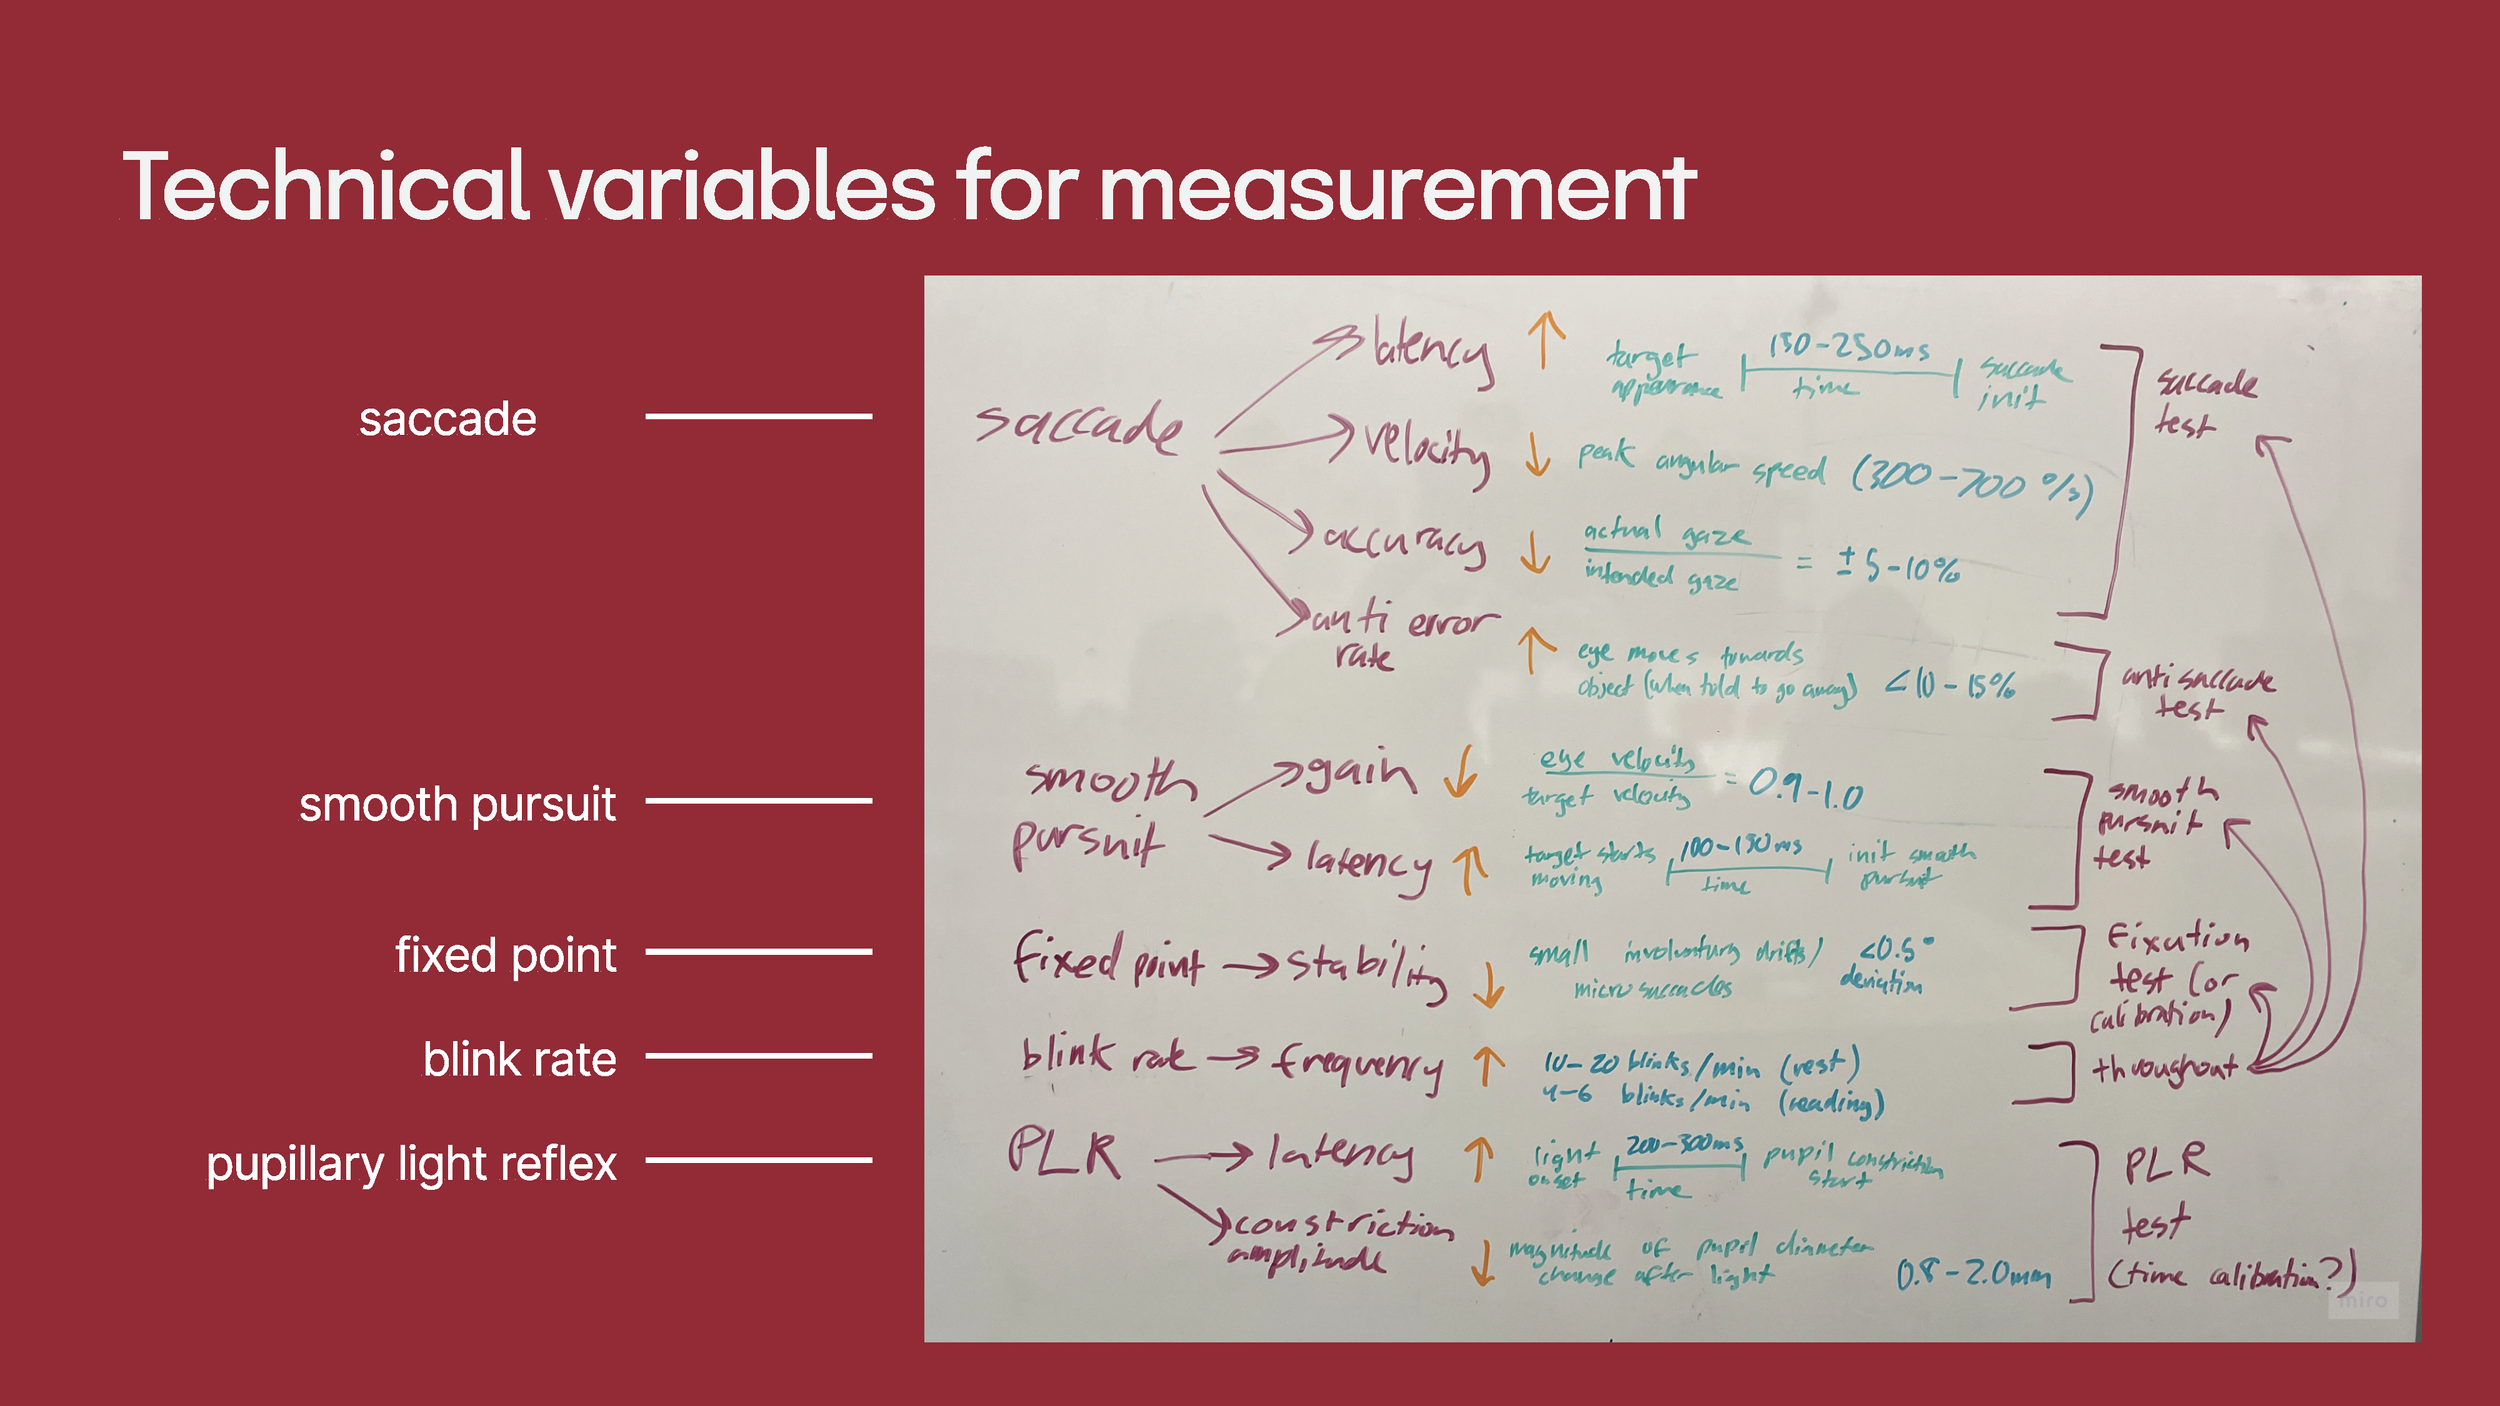 Technical variables for measurement
saccade
smooth pursuit
fixed point
blink rate
pupillary light reflex
saccade
latency ↑ target appearance 150-250ms time saccade init
velocity ↓ peak angular speed (300-700 °/s)
accuracy ↓ actual gaze
intended gaze = ± 5-10%
anti error
rate ↑ eye moves towards
object (when told to go away) <10-15%
saccade
test
anti saccade
test
smooth
pursuit
gain ↓ eye velocity
target velocity = 0.9-1.0
latency ↑ target starts
moving 100-150ms time init smooth
pursuit
smooth
pursuit
test
fixed point → stability ↓ small involuntary drifts/
micro saccades <0.5°
deviation
Fixation
test (or
calibration)
blink rate → frequency ↑ 10-20 blinks/min (rest)
4-6 blinks/min (reading)
throughout
PLR → latency ↑ light
onset 200-300ms time pupil constriction
start
constriction
amplitude ↓ magnitude of pupil diameter
change after light 0.8-2.0mm
PLR
test
(time calibration?)
miro